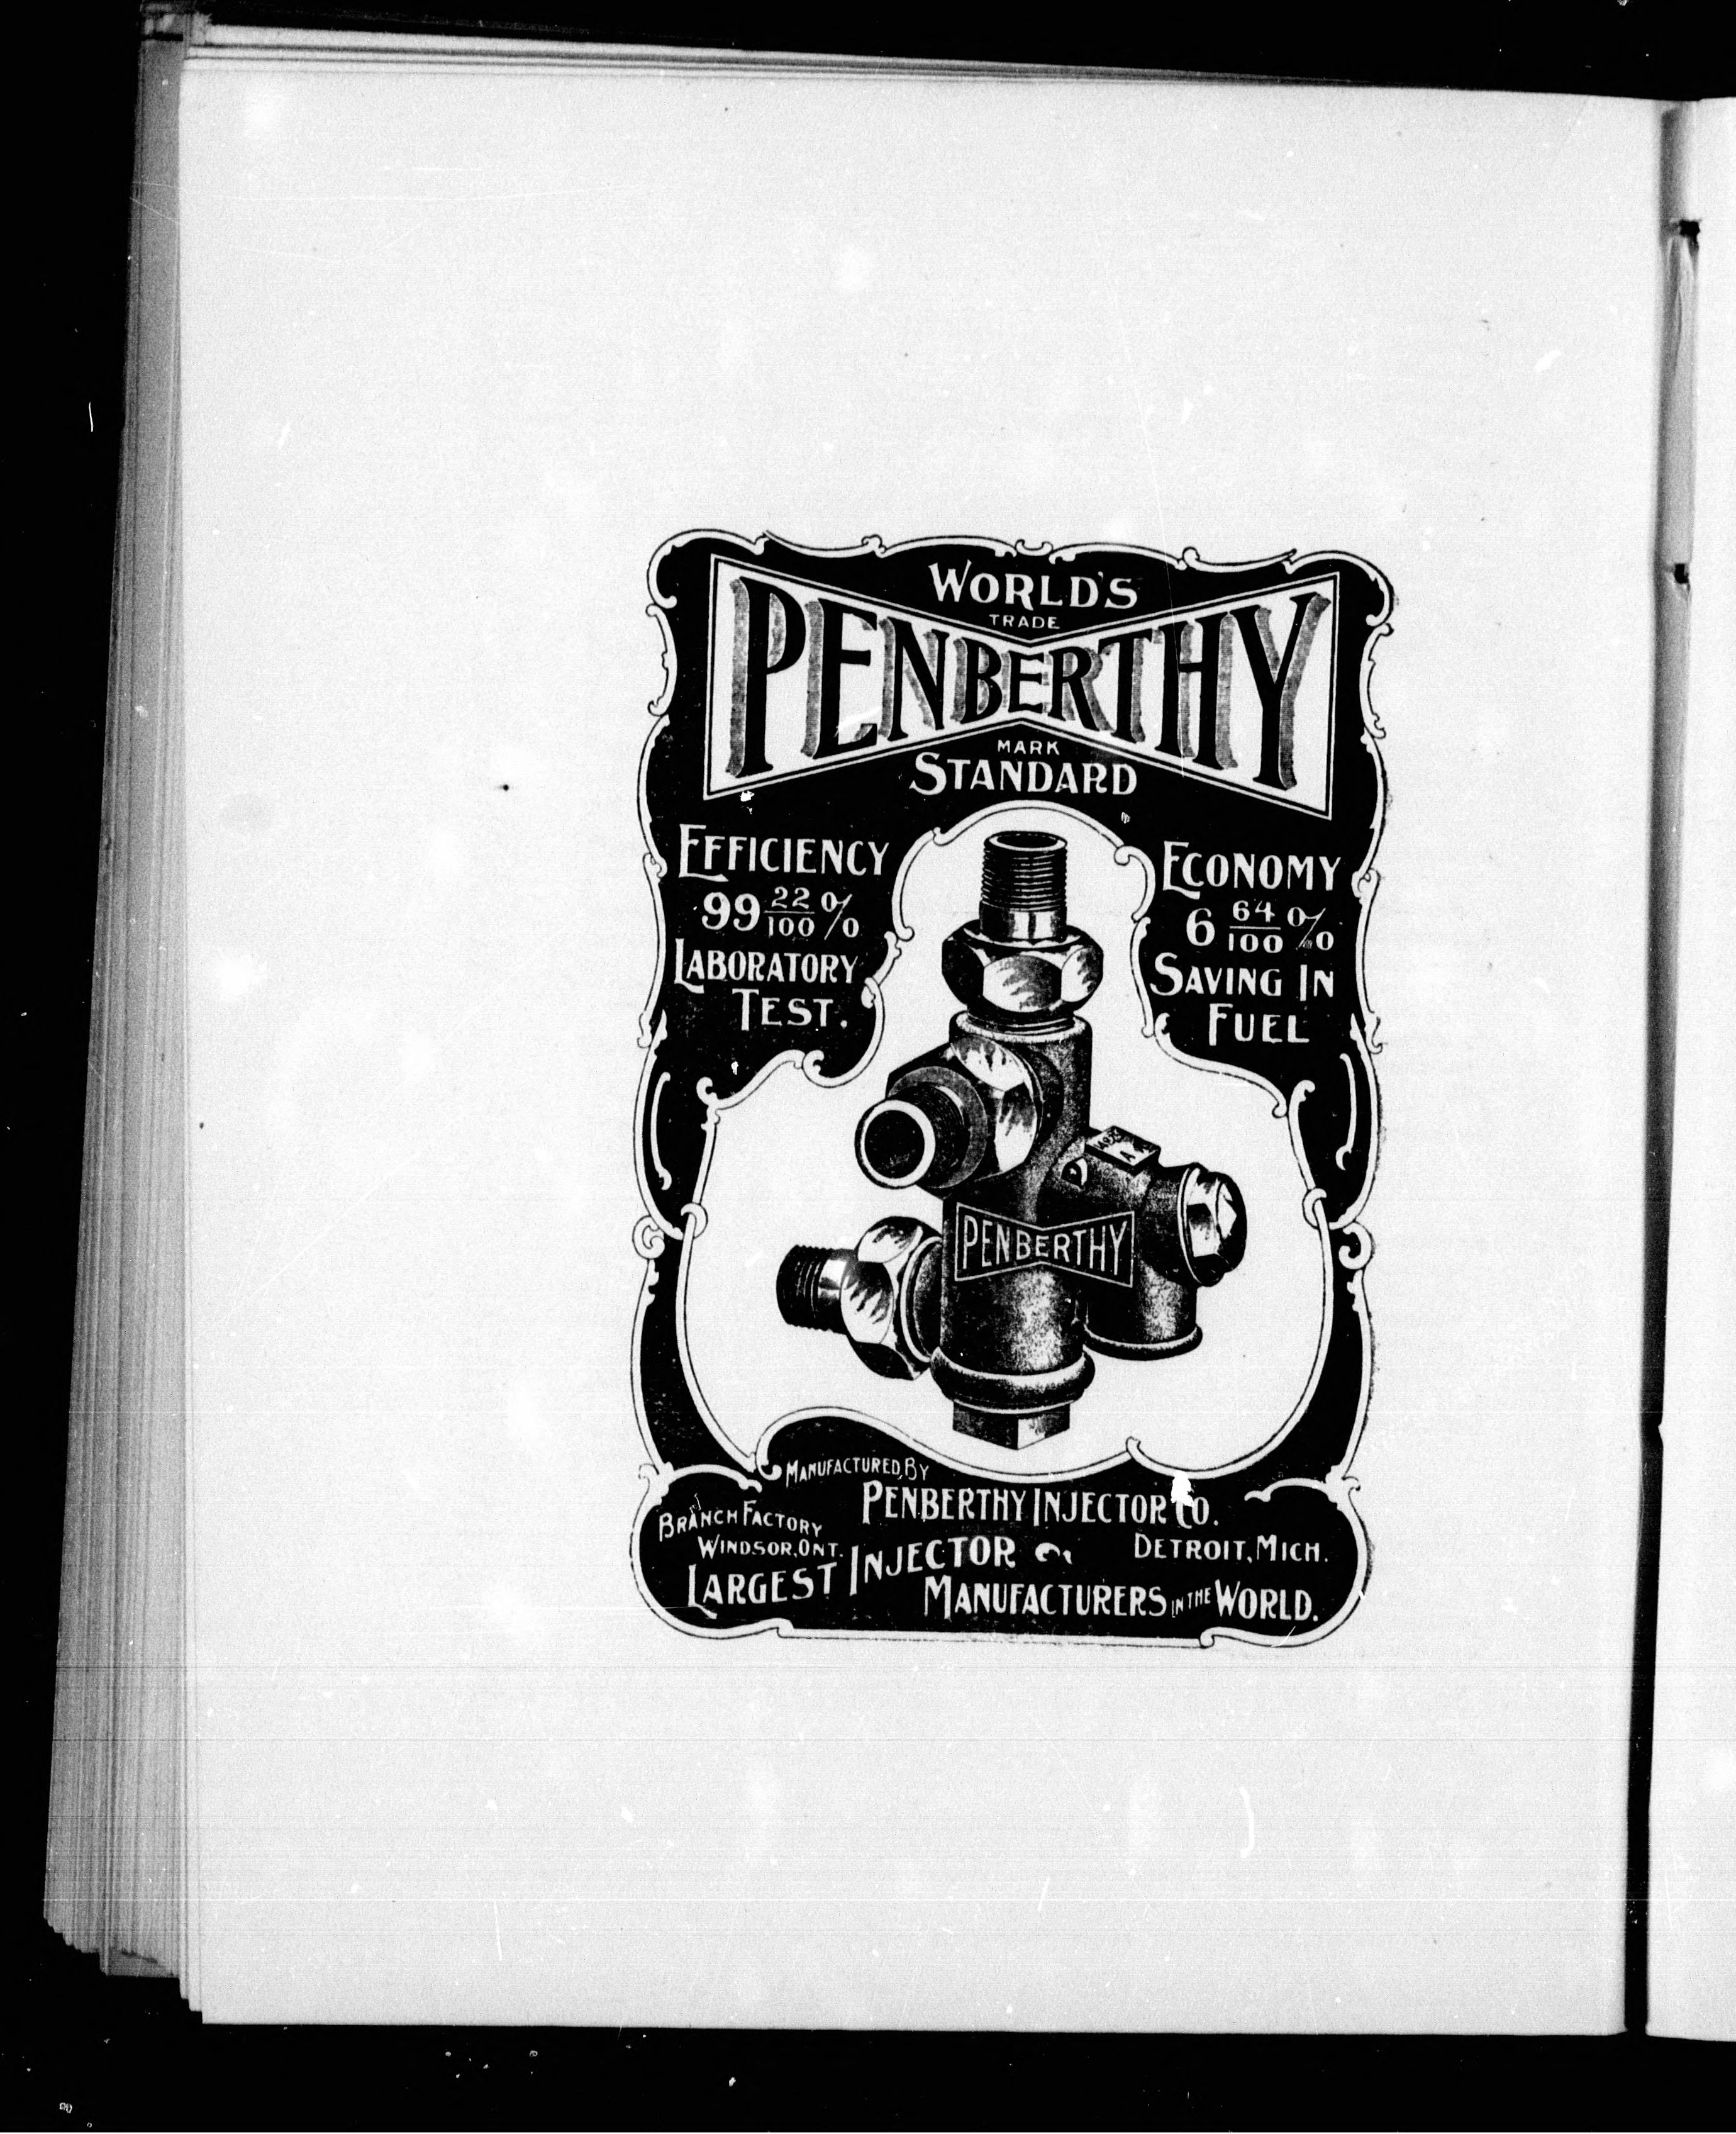 WORLD'S
TRADE
PENBERTHY
MARK
STANDARD
EFFICIENCY
99 22/100 %
LABORATORY
TEST.
ECONOMY
6 64/100 %
SAVING IN
FUEL
PENBERTHY
MANUFACTURED BY
PENBERTHY INJECTOR CO.
BRANCH FACTORY
WINDSOR, ONT.
DETROIT, MICH.
LARGEST INJECTOR
MANUFACTURERS IN THE WORLD.